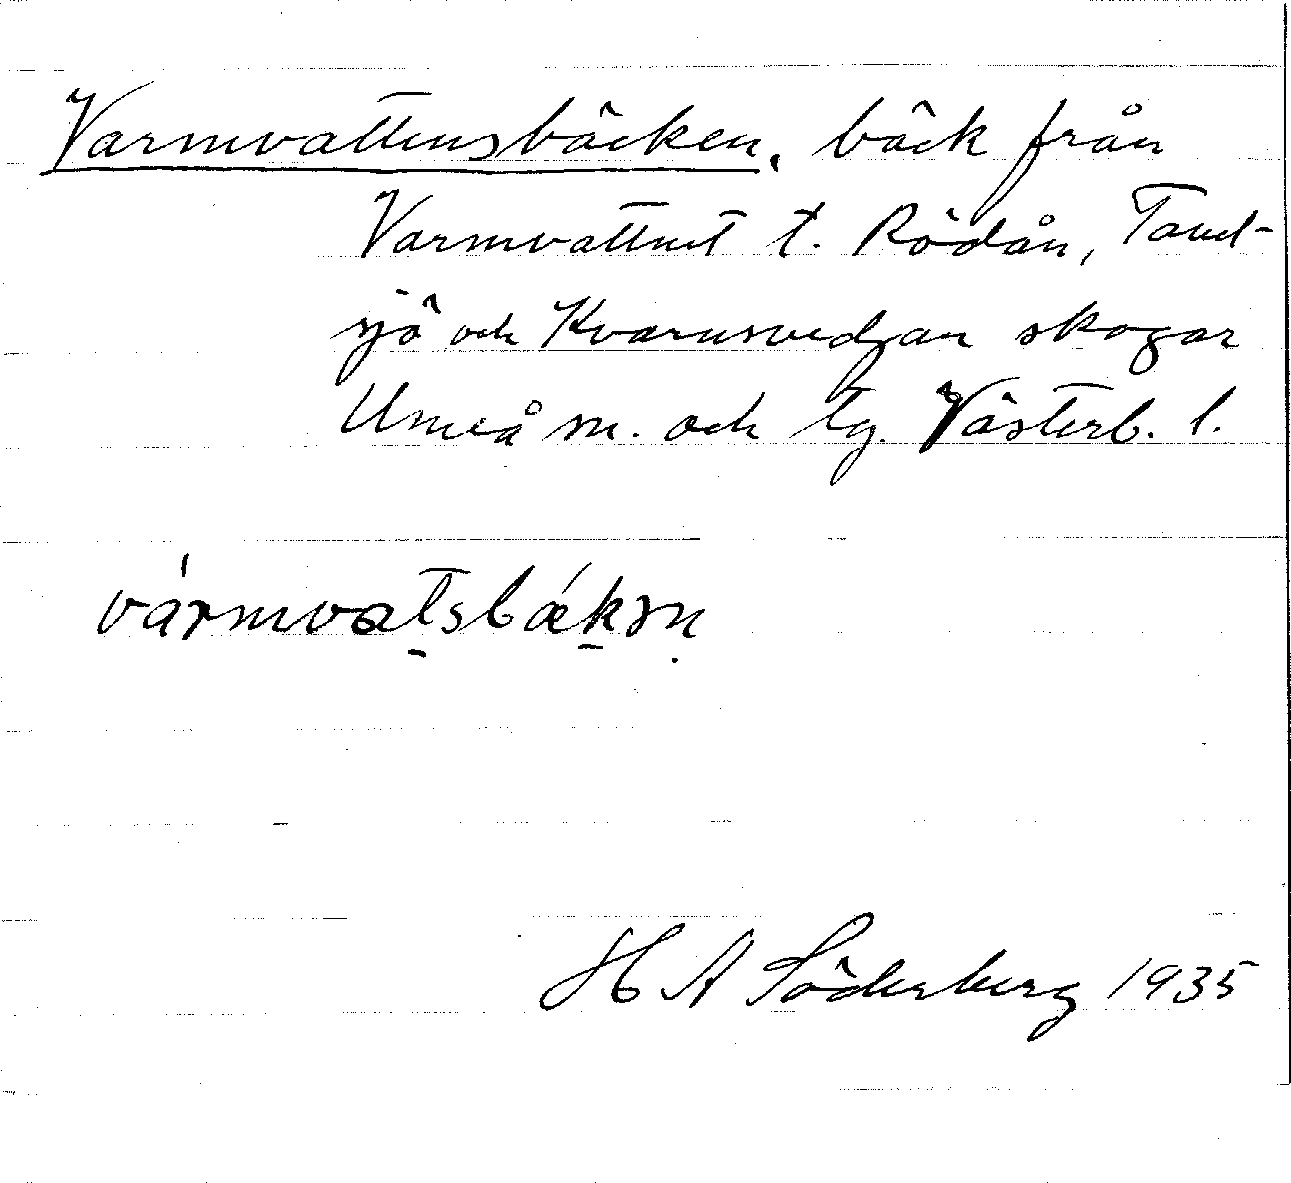 Varmvattensbäcken, bäck från
Varmvattnet t. Rödån, Tavel-
sjö och Kvarnsvedjan skogar
Umeå sn. och tg. Västerb. l.
vármvatsbækən
H A Söderberg 1935